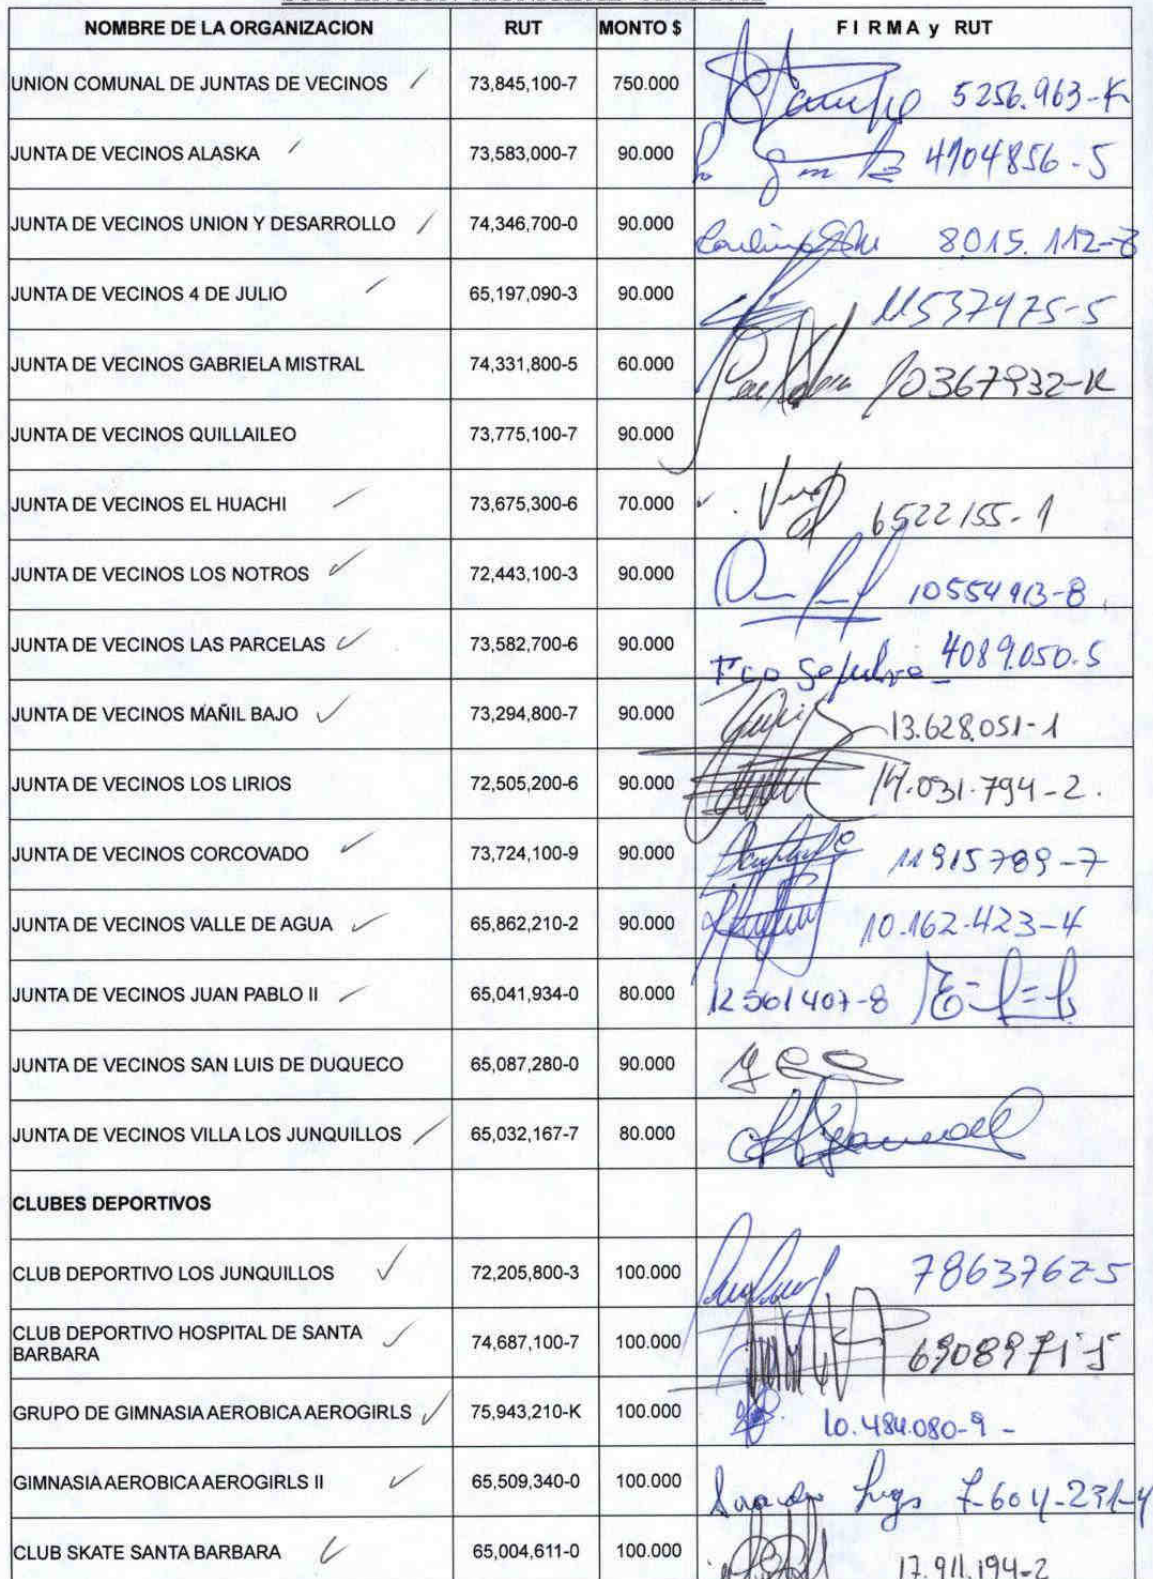 NOMBRE DE LA ORGANIZACION RUT MONTO $ FIRMA y RUT
UNION COMUNAL DE JUNTAS DE VECINOS 73,845,100-7 750.000 5256.963-K
JUNTA DE VECINOS ALASKA 73,583,000-7 90.000 4104856-5
JUNTA DE VECINOS UNION Y DESARROLLO 74,346,700-0 90.000 8015.112-8
JUNTA DE VECINOS 4 DE JULIO 65,197,090-3 90.000 11537475-5
JUNTA DE VECINOS GABRIELA MISTRAL 74,331,800-5 60.000 10367932-K
JUNTA DE VECINOS QUILLAILEO 73,775,100-7 90.000
JUNTA DE VECINOS EL HUACHI 73,675,300-6 70.000 6522155-1
JUNTA DE VECINOS LOS NOTROS 72,443,100-3 90.000 10554913-8
JUNTA DE VECINOS LAS PARCELAS 73,582,700-6 90.000 Fco Sepulve 4089.050-5
JUNTA DE VECINOS MAÑIL BAJO 73,294,800-7 90.000 13.628.051-1
JUNTA DE VECINOS LOS LIRIOS 72,505,200-6 90.000 14.031.794-2.
JUNTA DE VECINOS CORCOVADO 73,724,100-9 90.000 11915789-7
JUNTA DE VECINOS VALLE DE AGUA 65,862,210-2 90.000 10.162.423-4
JUNTA DE VECINOS JUAN PABLO II 65,041,934-0 80.000 12561407-8
JUNTA DE VECINOS SAN LUIS DE DUQUECO 65,087,280-0 90.000
JUNTA DE VECINOS VILLA LOS JUNQUILLOS 65,032,167-7 80.000
CLUBES DEPORTIVOS
CLUB DEPORTIVO LOS JUNQUILLOS 72,205,800-3 100.000 7863762-5
CLUB DEPORTIVO HOSPITAL DE SANTA
BARBARA 74,687,100-7 100.000 6908971-5
GRUPO DE GIMNASIA AEROBICA AEROGIRLS 75,943,210-K 100.000 10.484.080-9-
GIMNASIA AEROBICA AEROGIRLS II 65,509,340-0 100.000
CLUB SKATE SANTA BARBARA 65,004,611-0 100.000 17.911.194-2